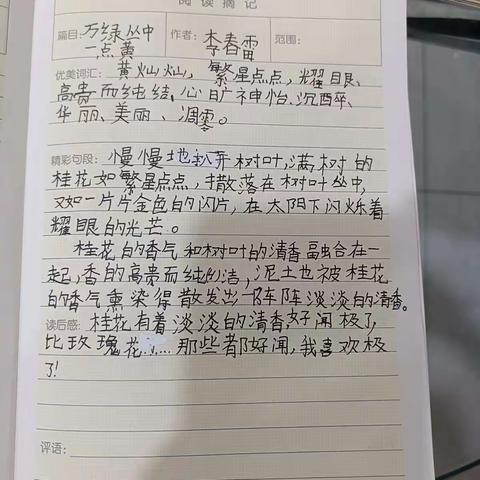 阅读摘记
篇目: 万绿丛中一点黄 作者: 李春雷 范围:
优美词汇: 黄灿灿, 繁星点点, 耀眼、
高贵而纯结、心旷神怡、沉醉、
华丽、美丽、凋零。
精彩句段: 慢慢地扒开树叶,满树的
桂花如繁星点点,散落在树叶丛中,
又如一片片金色的闪片,在太阳下闪烁着
耀眼的光芒。
桂花的香气和树叶的清香融合在一
起,香的高贵而纯洁,泥土也被桂花
的香气熏染得散发出一阵阵淡淡的清香。
读后感: 桂花有着淡淡的清香,好闻极了,
比玫瑰花……那些都好闻,我喜欢极
了!
评语: